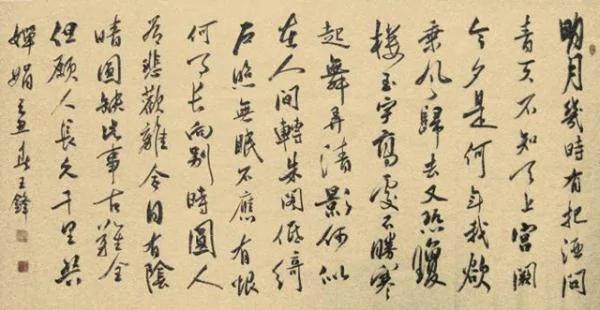 明月幾時有把酒問
青天不知天上宮闕
今夕是何年我欲
乘風歸去又恐瓊
樓玉宇高處不勝寒
起舞弄清影何似
在人間轉朱閣低綺
戶照無眠不應有恨
何事長向別時圓人
有悲歡離合月有陰
晴圓缺此事古難全
但願人長久千里共
嬋娟 孟春王鋒